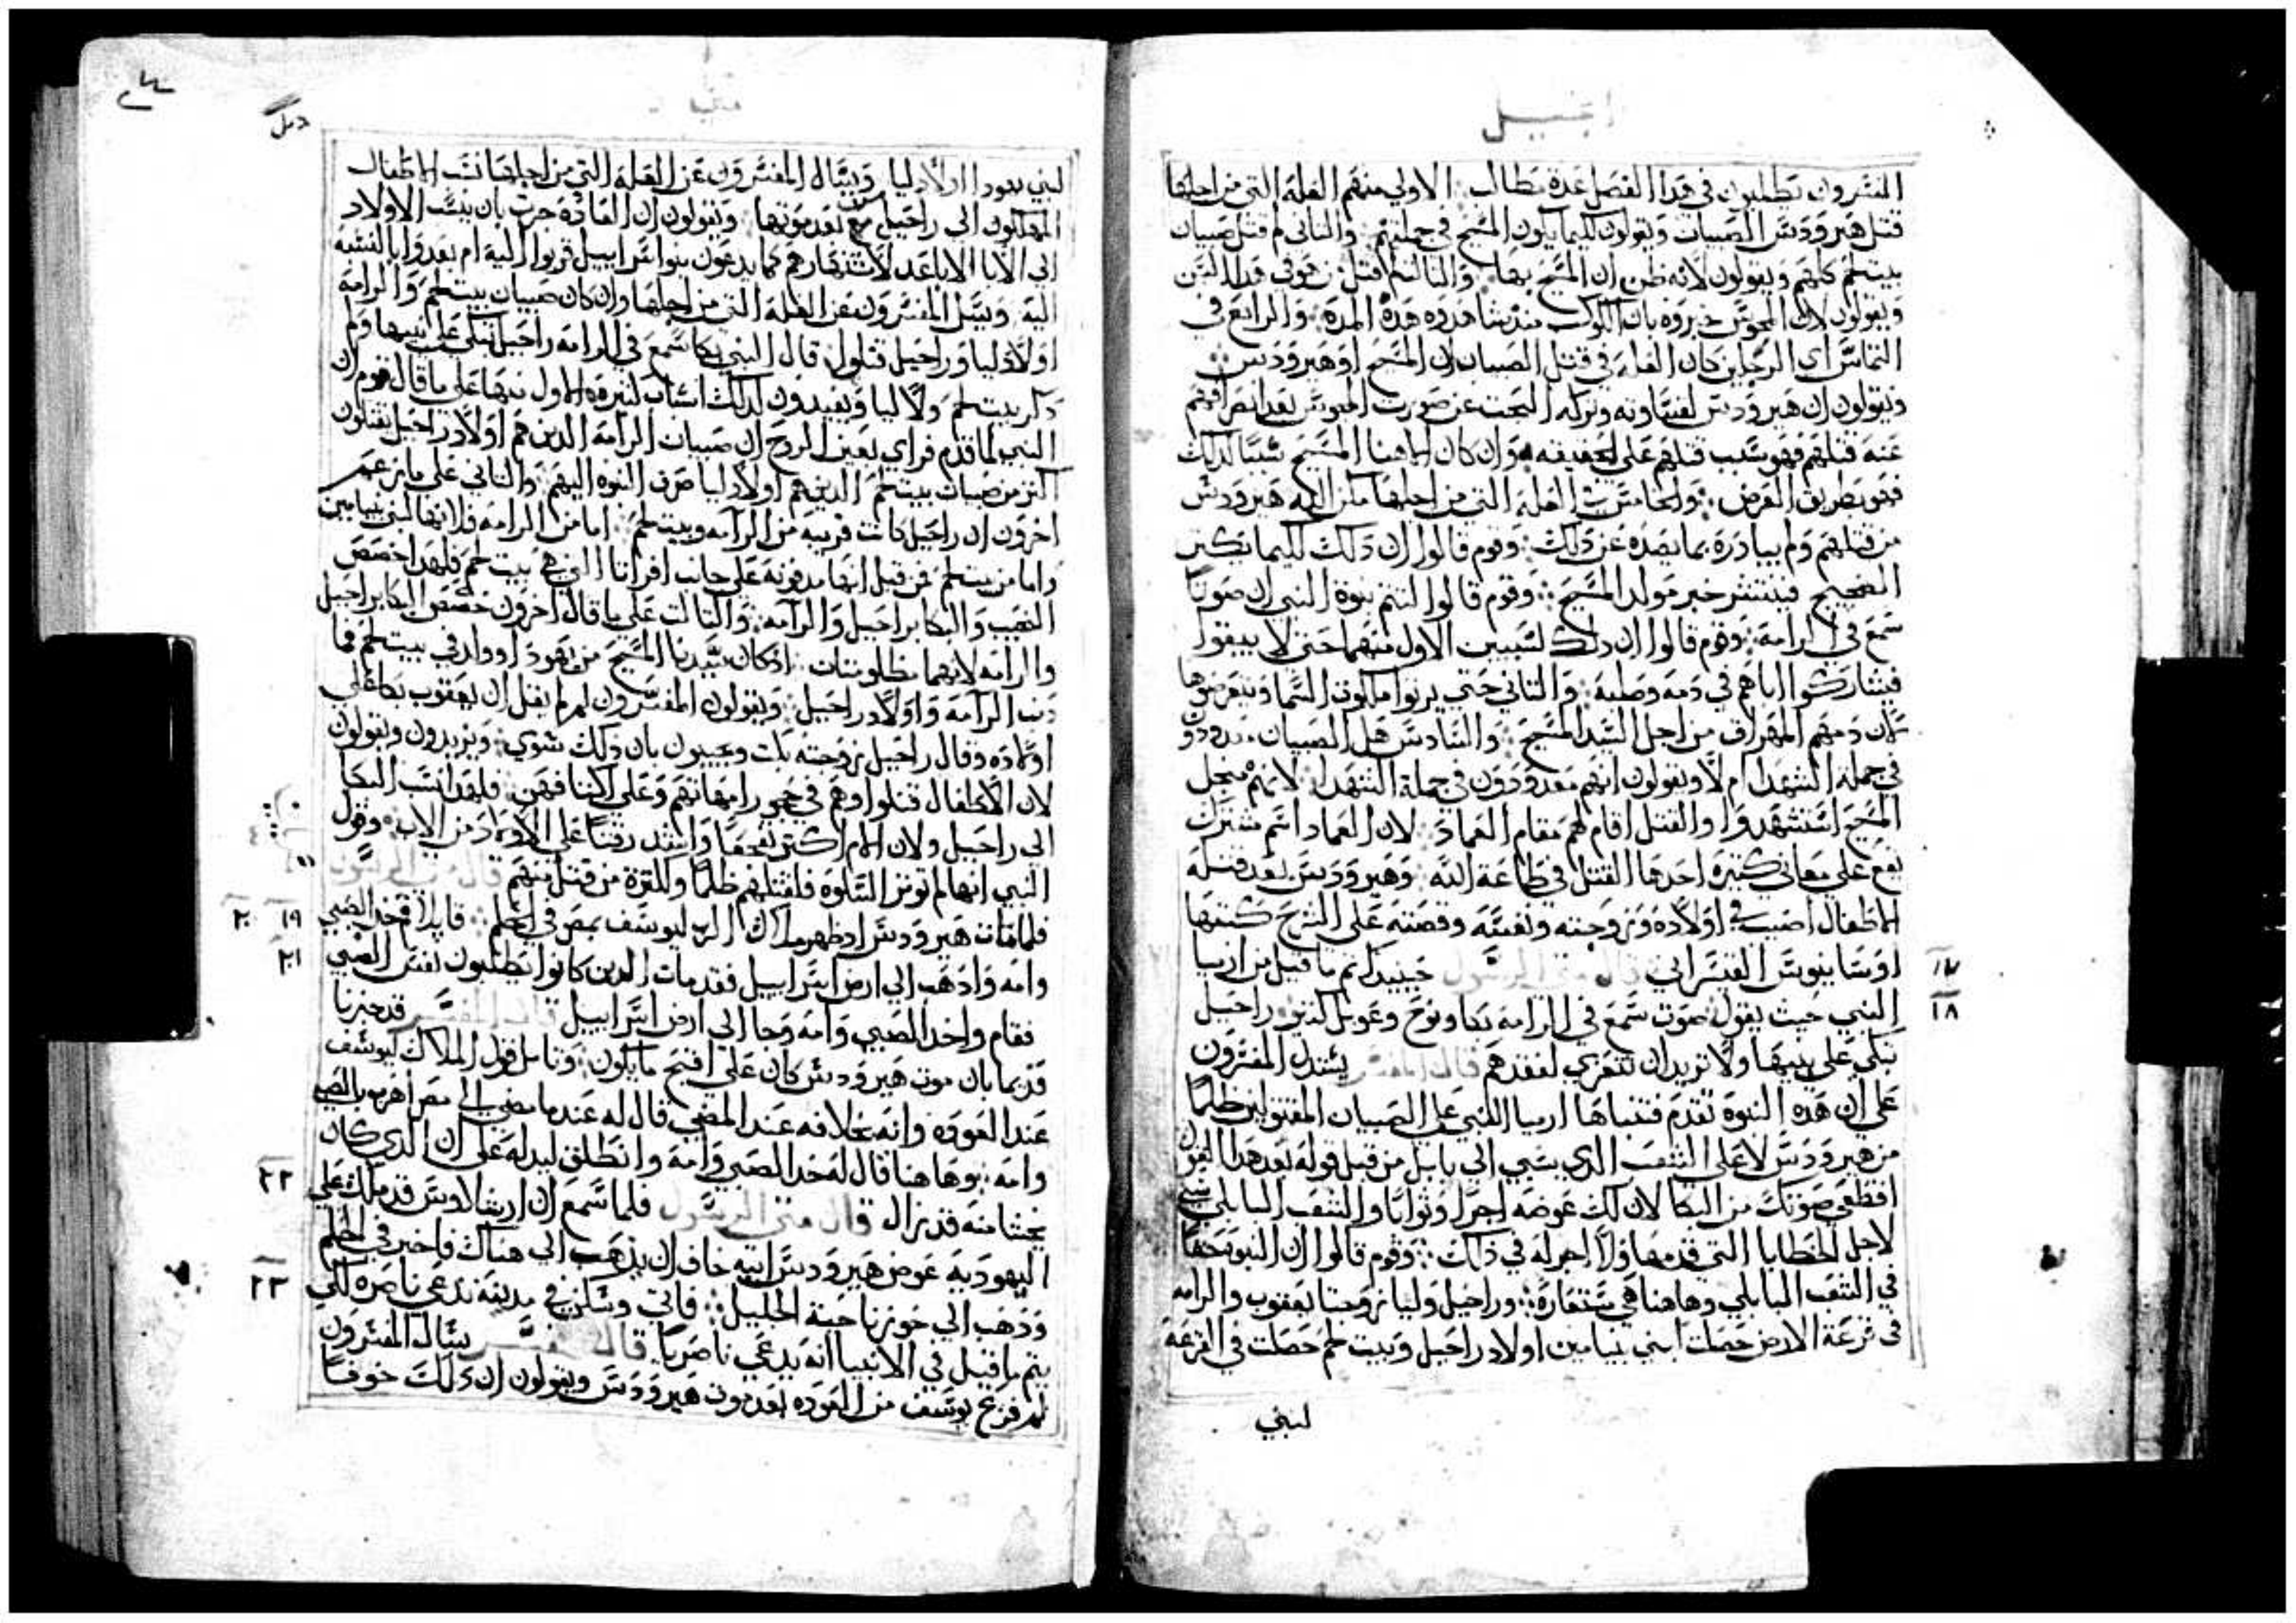 انجيل
المفسرون يطلبون في هدا الفصل عدة مطالب الاولي منهم العلة التي من اجلها
قتل هيرودس الصبيان ويقولون لكيما يكون المسيح في جملتهم والتاني لم قتل صبيان
بيتلحم كلهم ويقولون لانه ظن ان المسيح بها والتالت لم قتل من هو في هدا السن
ويقولون لان المجوس خبروه بان الكوكب مند شاهدوه هده المدة والرابع في
التماس اي الرجلين كان العلة في قتل الصبيان ان المسيح او هيرودس
ويقولون ان هيرودس لقساوته وتركه البحت عن صورت المجوس بعد انصرافهم
عنه قتلهم فهو سبب قتلهم علي الحقيقه وان كان هاهنا المسيح سببا لدلك
فهو بطريق العرض والخامس العلة التي من اجلها مكن الاله هيرودس
من قتلهم ولم يبادره بما يصده عن دلك وقوم قالوا ان دلك لكيما يكتر
الضجيج فينتشر خبر مولد المسيح وقوم قالوا لتتم نبوة النبي ان صوتا
سمع في الرامة وقوم قالوا ان دلك لسببين الاول منهما حتي لا يبقوا
فيشاركوا اباهم في دمه وصلبه والتاني حتي يرتوا ملكوت السما
دمهم المهراق من اجل السيد المسيح والسادس هل الصبيان
في جملة الشهدا ام لا ويقولون انهم معدودون في جملة الشهدا لانهم من اجل
المسيح استشهدوا والقتل اقام لهم مقام العماد لان العماد اسم مشترك
يقع علي معاني كتيرة احدها القتل في طاعة الله وهيرودس بعد قتله
الاطفال اصيب في اولاده وزوجته ونفسه وقصته علي الشرح كتبها
اوسابيوس القيسراني قال متي الرسول حينيد تم ما قيل من ارميا
١٧
النبي حيت يقول صوت سمع في الرامة بكا ونوح وعويل كتير راحيل
١٨
تبكي علي بنيها ولا تريد ان تتعزي لفقدهم قال المفسر يستدل المفسرون
علي ان هده النبوة تقدم فتنباها ارميا النبي علي الصبيان المقتولين ظلما
من هيرودس لا علي الشعب الدي سبي الي بابل من قبل قوله بعد هدا القول
اقطعي صوتك من البكا لان لك عوضه اجرا وثوابا والشعب البابلي سبي
لاجل الخطايا التي قدمها ولا اجر له في دلك وقوم قالوا ان النبوة حقا
في الشعب البابلي وهاهنا هي مستعارة وراحيل وليا زوجتا يعقوب والرامه
في قرعة الارض حصلت لبني بنيامين اولاد راحيل وبيت لحم حصلت في القرعة
لبني
متي
لبني يهودا اولاد ليا ويسال المفسرون عن العلة التي من اجلها نسب الاطفال
المهلكون الي راحيل مع بعد موتها ويقولون ان العادة جرت بان ينسب الاولاد
الي الابا الاباعد لاشتهارهم كما يدعون بنوا اسراييل قربوا اليه ام بعدوا بالنسبة
اليه ويسل المفسرون عن العلة التي من اجلها وان كان صبيان بيتلحم والرامة
اولاد ليا وراحيل قتلوا قال النبي بكا سمع في الرامه راحيل تبكي علي بنيها ولم
دكر بيتلحم ولا ليا ويفيدون لدلك اسباب كتيره الاول منها علي ما قال قوم ان
النبي لما تقدم فراي بعين الروح ان صبيان الرامة الدين هم اولاد راحيل يقتلون
اكتر من صبيان بيتلحم الدين هم اولاد ليا صرف النبوه اليهم والتاني علي ما زعم
اخرون ان راحيل كانت قريبة من الرامه وبيتلحم اما من الرامة فلانها لبني بنيامين
واما من بيتلحم فمن قبل انها مدفونة علي جانب افراتا التي هي بيت لحم فلهدا خصص
النحيب والبكا براحيل والرامه والتالت علي ما قال اخرون خصص البكا براحيل
والرامه لانهما مظلومتان ادكان سيدنا المسيح من يهودا وولد في بيتلحم فما
دنب الرامة واولاد راحيل ويقولون المفسرون لم لم يقل ان يعقوب بكا علي
اولاده وقال راحيل زوجته بكت ويجيبون بان دلك سوي ويزيدون ويقولون
لان الاطفال قتلوا وهم في حجور امهاتهم وعلي اكتافهن فلهدا نسب البكا
الي راحيل ولان الام اكتر تفجعا واشد رقتا علي الاولاد من الاب وقول
النبي انها لم توتر السلوه فلقتلهم ظلما ولكترة من قتل منهم قال متي الرسول
فلما مات هيرودس اد ظهر ملاك الرب ليوسف بمصر في الحلم قايلا قم خد الصبي
١٩ ٢٠
وامه وادهب الي ارض اسراييل فقد مات الدين كانوا يطلبون نفس الصبي
٢١
فقام واخد الصبي وامه وجا الي ارض اسراييل قال المفسر قد خبرنا
قديما بان موت هيرودس كان علي اقبح ما يكون وتامل قول الملاك ليوسف
عند العوده وانه بخلافه عند المضي قال له عندما مضي الي مصر اهرب بالصبي
وامه وهاهنا قال له خد الصبي وامه وانطلق ليدله علي ان الدي كان
يخشا منه قد زال قال متي الرسول فلما سمع ان ارشلاوس قد ملك علي
٢٢
اليهودية عوض هيرودس ابيه خاف ان يدهب الي هناك فاخبر في الحلم
ودهب الي حوز ناحية الجليل فاتي وسكن في مدينة تدعي ناصره لكي
٢٣
يتم ما قيل في الانبيا انه يدعي ناصريا قال المفسر يسال المفسرون
لم فزع يوسف من العوده بعد موت هيرودس ويقولون ان دلك خوفا